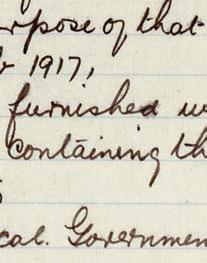 rpose of that
1917,
furnished w
containing th
cal. Governmen